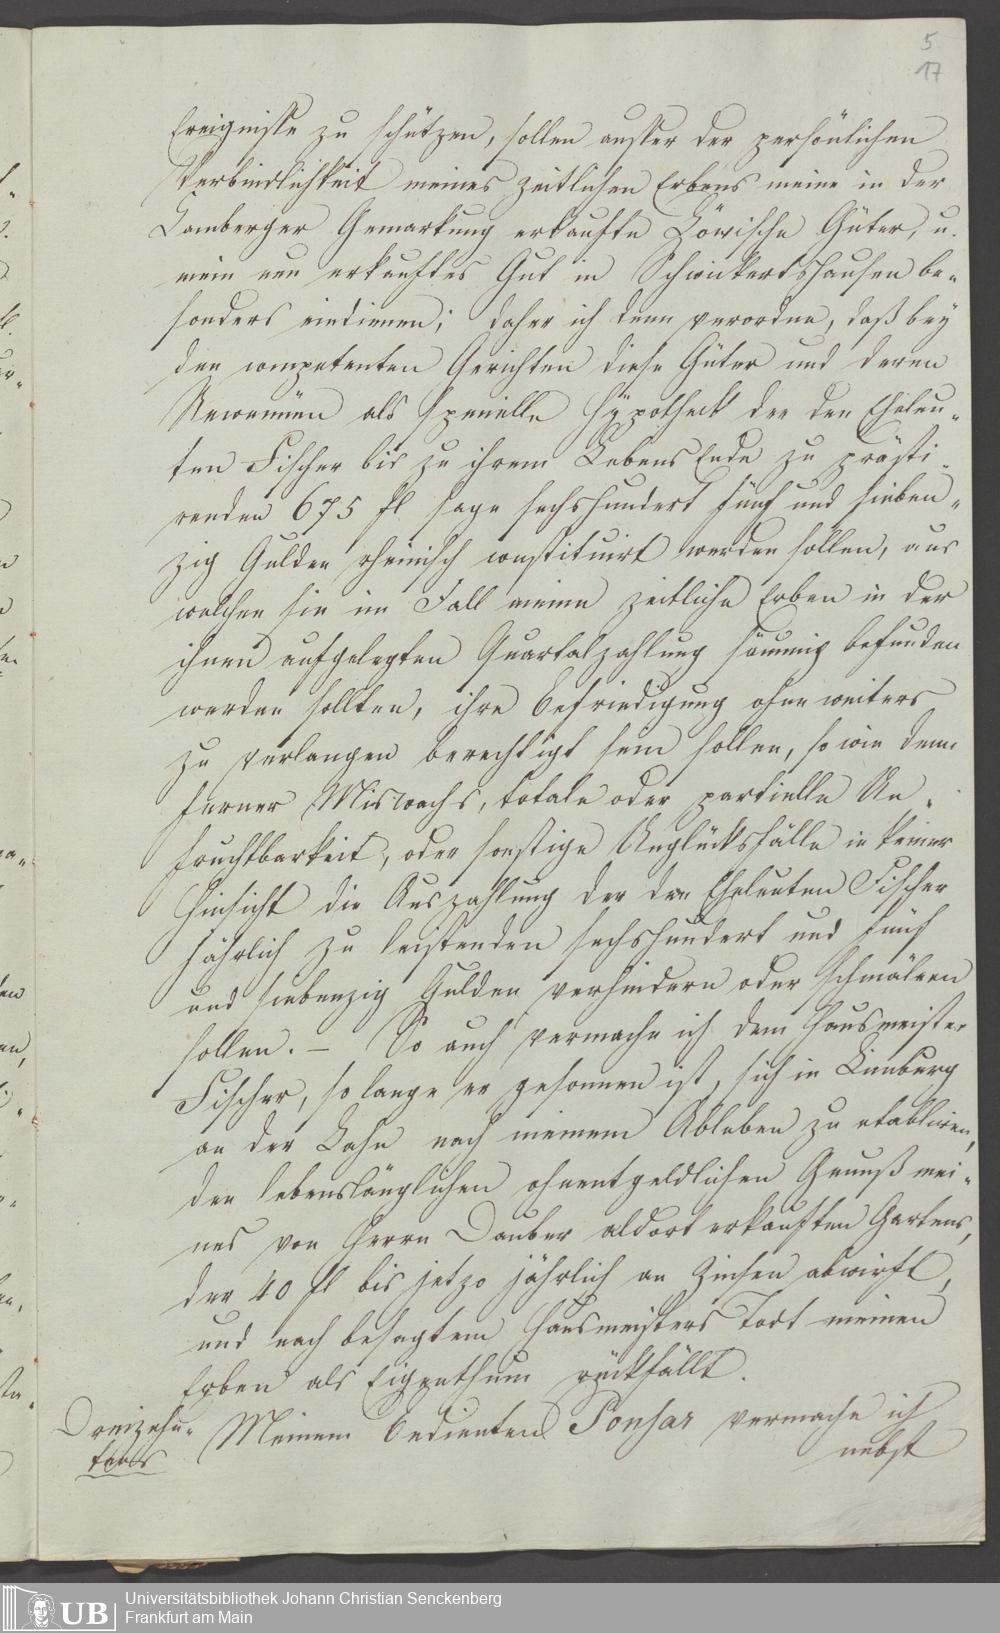 5
17
Ereignisse zu schützen, sollen ausser der persönlichen
Verbindlichkeit meines zeitlichen Erbens meine in der
Camberger Gemarkung erkaufte Löwische Güter, u.
mein neu erkauftes Gut in Schwickertshausen be-
sonders eindienen; daher ich denn verordne, daß bey
den competenten Gerichten diese Güter und deren
Revenüen als spezielle Hypotheck der den Eheleu-
ten Fischer bis zu ihrem Lebens Ende zu prästi-
renden 675 fl sage sechshundert fünf und sieben-
zig Gulden rheinisch constituirt werden sollen, aus
welchen sie im Fall meine zeitliche Erben in der
ihnen aufgelegten Quartalzahlung säumig befunden
werden sollten, ihre Befriedigung ohne weiters
zu verlangen berechtigt sein sollen, so wie denn
ferner Miswachs, totale oder partielle Un-
fruchtbarkeit, oder sonstige Unglücksfälle in keiner
Hinsicht die Auszahlung der den Eheleuten Fischer
jährlich zu leistenden sechshundert und fünf
und siebenzig Gulden verhindern oder schmälern
sollen. – So auch vermache ich dem Hausmeister
Fischer, so lange er gesonnen ist, sich in Limburg
an der Lahn nach meinem Ableben zu etabliren,
den lebenslänglichen ohnentgeldlichen Genuß mei-
nes von Herrn Dauber aldort erkauften Gartens,
der 40 fl bis jetzo jährlich an Zinsen abwirft,
und nach besagtem Hausmeisters Todt meinen
Erben als Eigenthum rückfällt.
Dreizehn-
tens
Meinem Bedienten Ponsar vermache ich
nebst
Universitätsbibliothek Johann Christian Senckenberg
Frankfurt am Main
UB